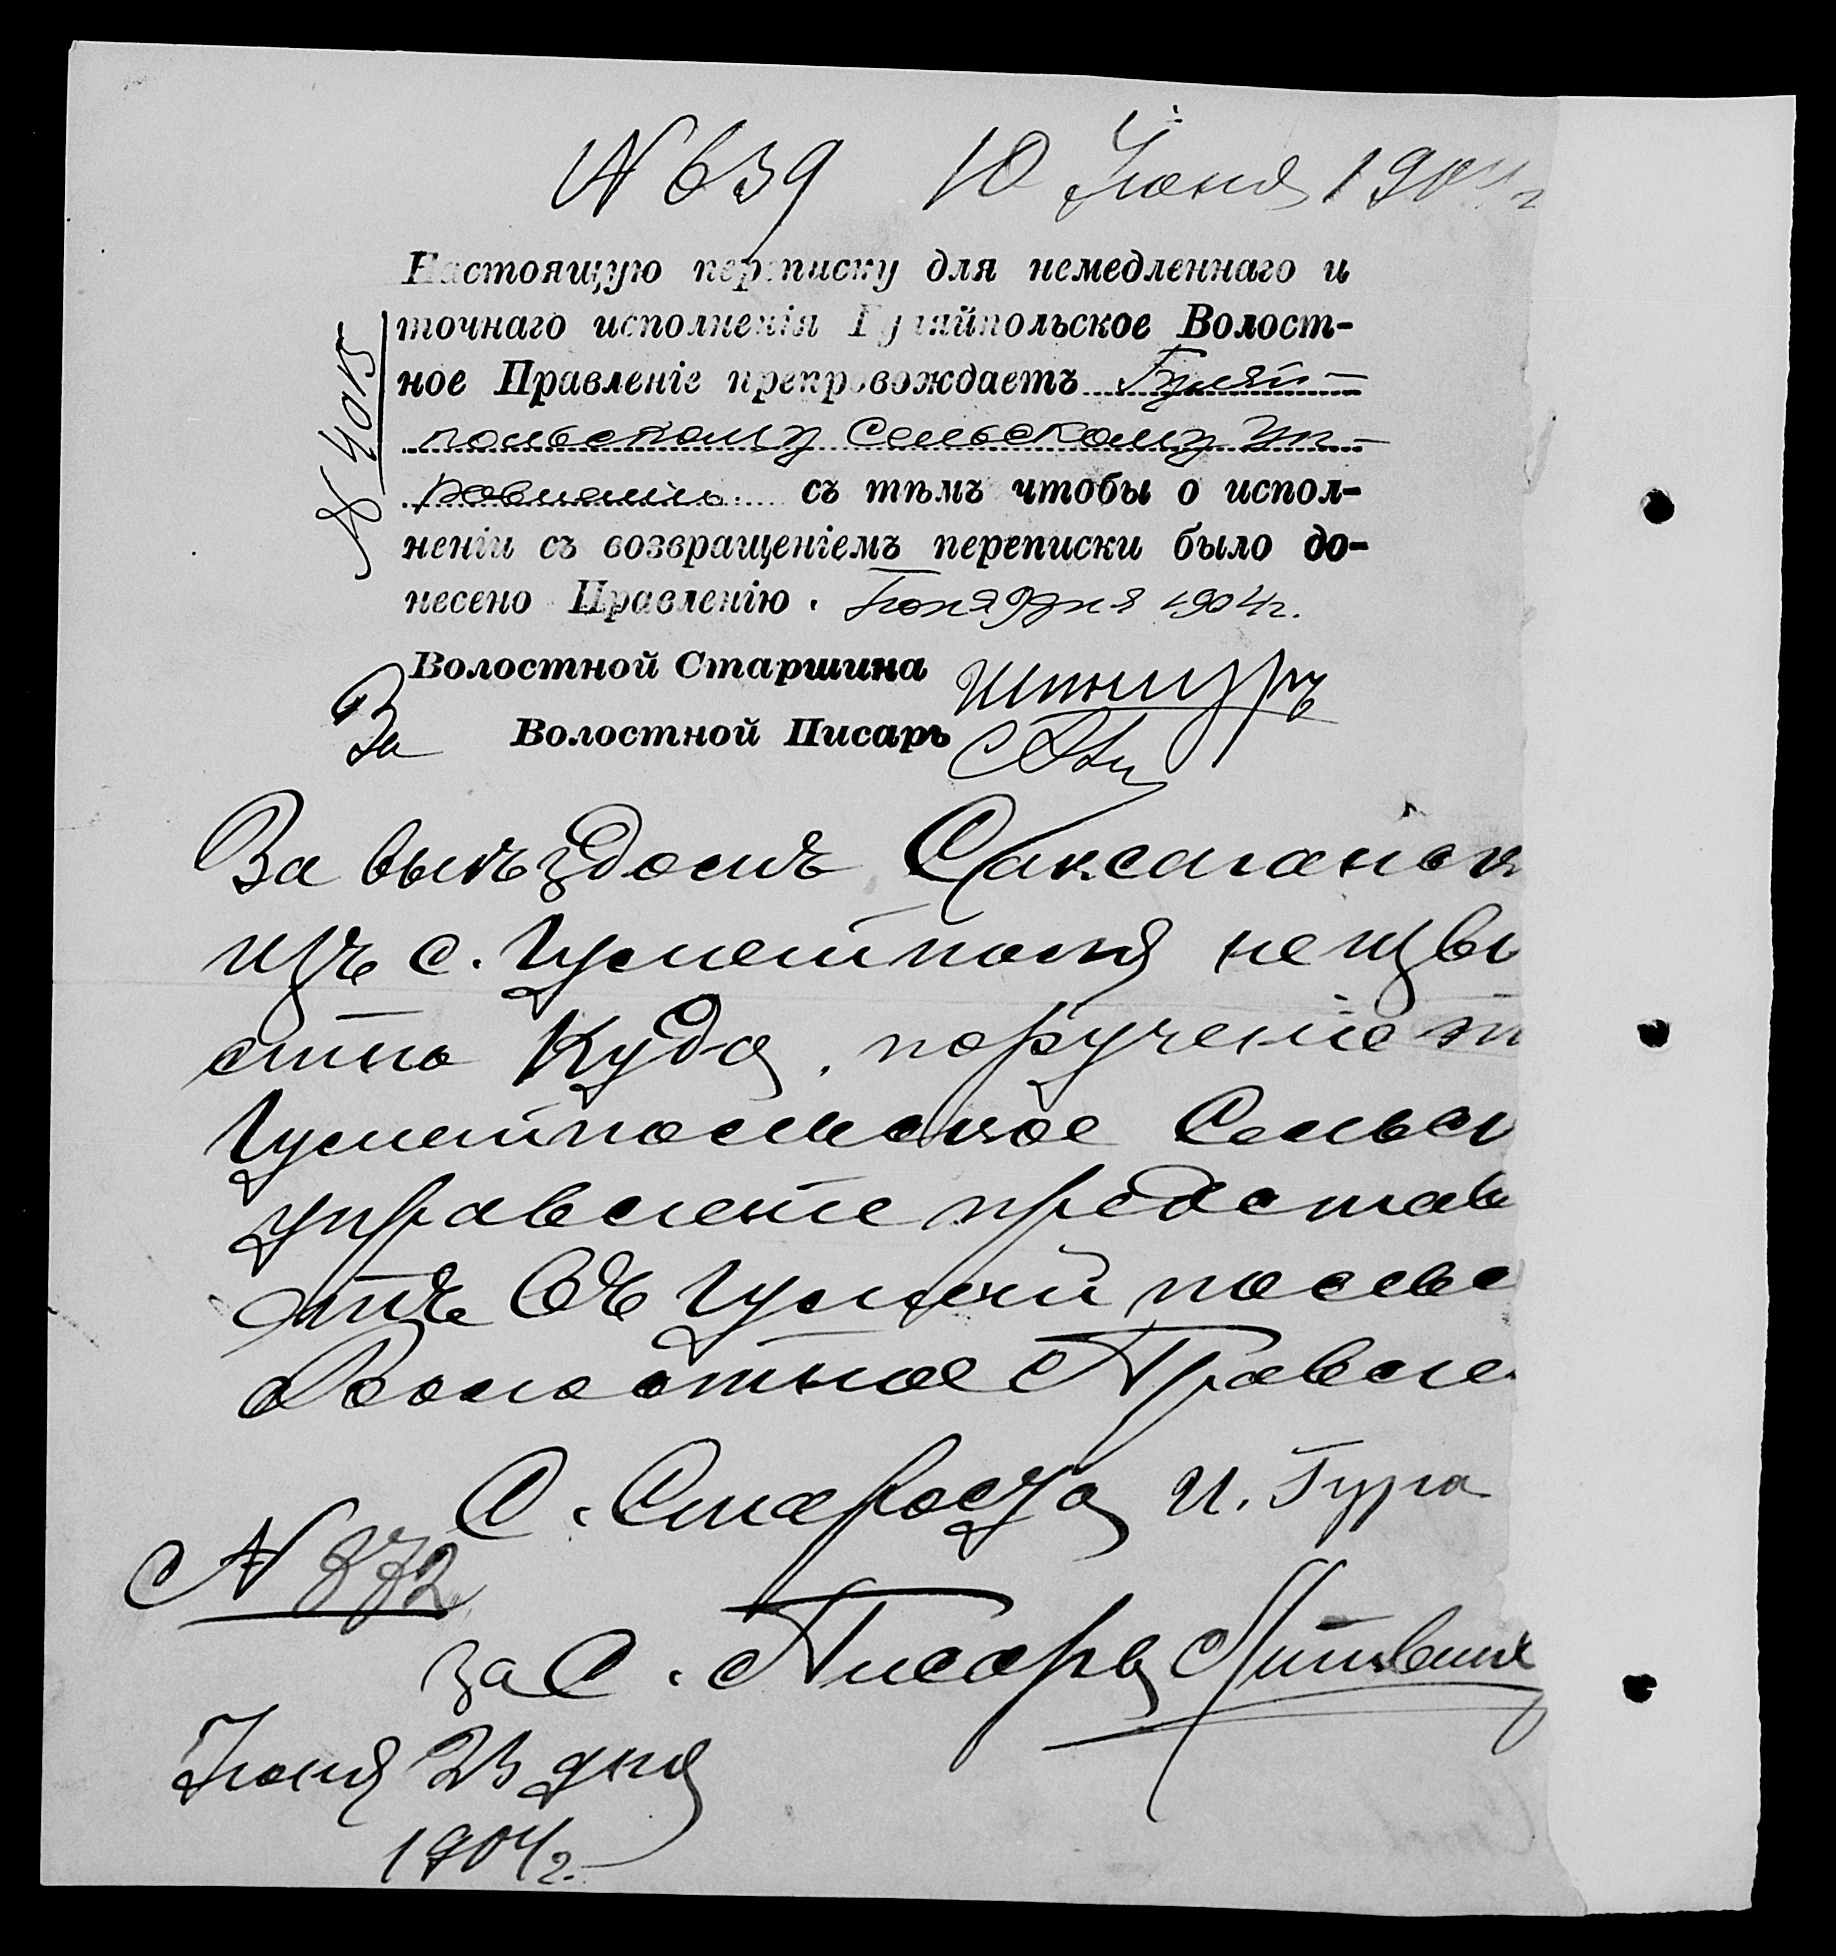 № 639 10 Іюня 1904 г
Настоящую переписку для немедленнаго и
точнаго исполненія Гуляйпольское Волост-
ное Правленіе препровождаетъ Гуляй-
польскому Сельскому Уп-
равленію съ тѣмъ чтобы о испол-
неніи съ возвращеніемъ переписки было до-
несено Правленію. Іюня 9 дня 1904 г.
№ 4015
Волостной Старшина
За Волостной Писарь
За выѣздомъ Саксаганск
изъ с. Гуляйполя неизвѣ
стно куда, порученіе
Гуляйпольское Сельск
управленіе представ
етъ въ Гуляйпольс
Волостное Правле
С. Староста И. Гура
№ 872
за С. Писаря Литвин
Іюня 23 дня
1904 г.